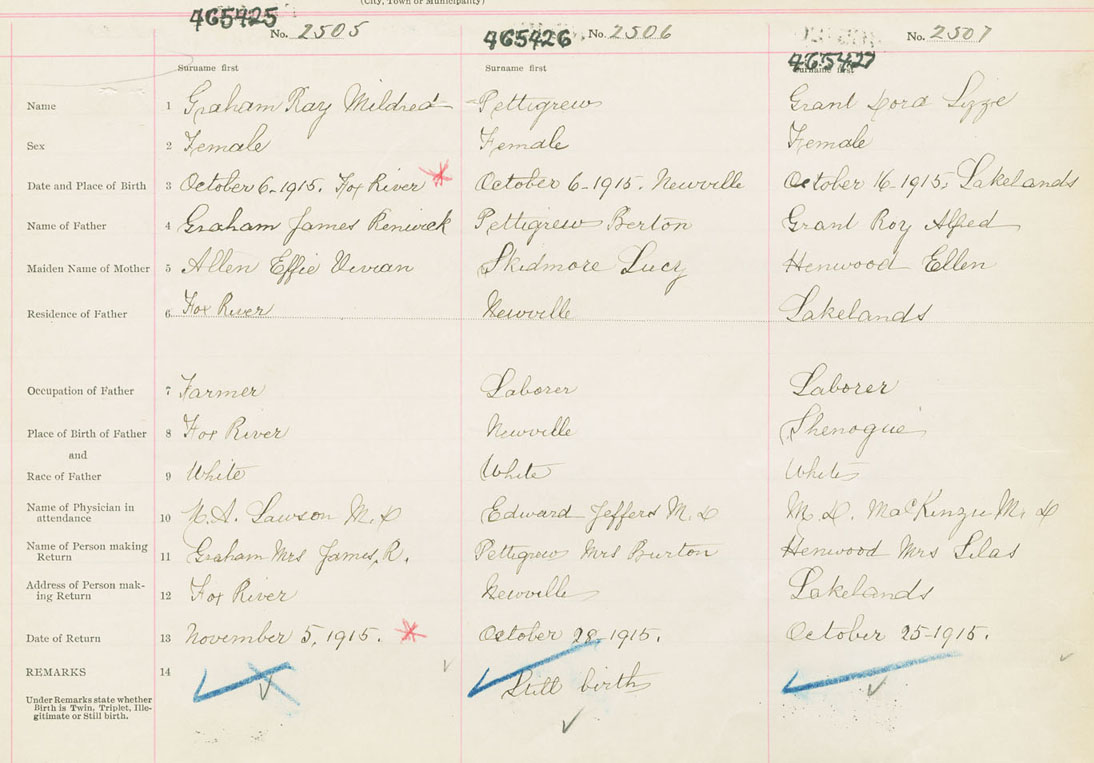 (City, Town or Municipality)
465425 No. 2505 465426 No. 2506 465427 No. 2507
Surname first Surname first Surname first
Name 1 Graham Ray Mildred Pettigrew Grant Dora Lizze
Sex 2 Female Female Female
Date and Place of Birth 3 October 6-1915. Fox River * October 6-1915. Newville October 16-1915. Lakelands
Name of Father 4 Graham James Renwick Pettigrew Berton Grant Roy Alfred
Maiden Name of Mother 5 Allen Effie Vivian Skidmore Lucy Henwood Ellen
Residence of Father 6 Fox River Newville Lakelands
Occupation of Father 7 Farmer Laborer Laborer
Place of Birth of Father 8 Fox River Newville Shenogue
and
Race of Father 9 White White White
Name of Physician in
attendance 10 Lawson M.D Edward Jeffers M.D M.D. MacKinzie M.D
Name of Person making
Return 11 Graham Mrs James R. Pettigrew Mrs Burton Henwood Mrs Silas
Address of Person mak-
ing Return 12 Fox River Newville Lakelands
Date of Return 13 November 5, 1915. * October 28-1915. October 25-1915.
REMARKS 14 Still birth
Under Remarks state whether
Birth is Twin, Triplet, Ille-
gitimate or Still birth.